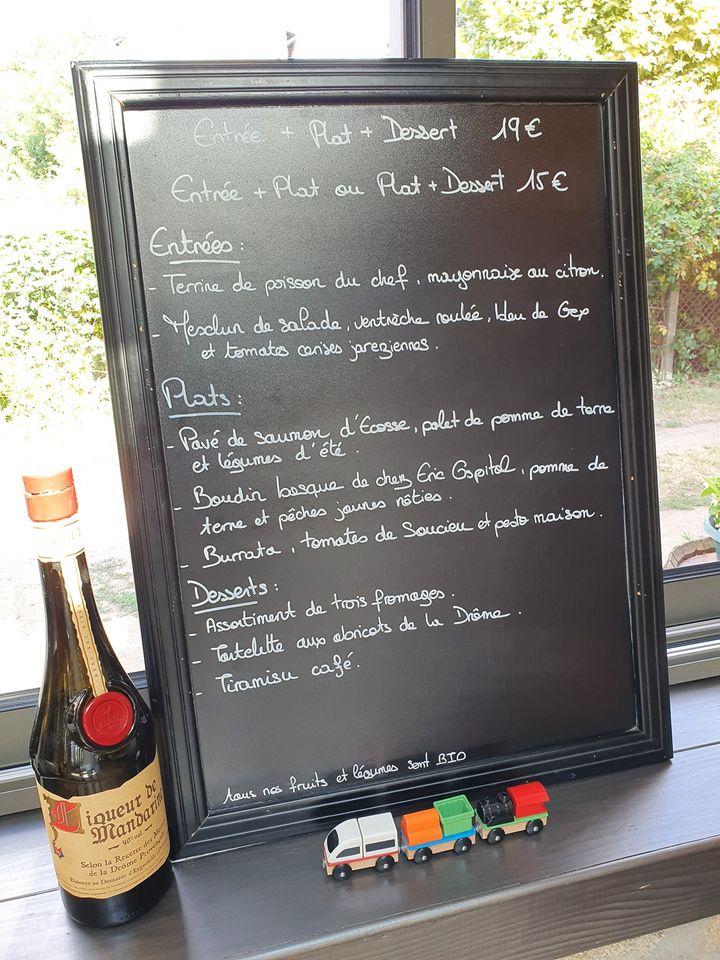 Entrée + Plat + Dessert 19€
Entrée + Plat ou Plat + Dessert 15€
Entrées :
- Terrine de poisson du chef, mayonnaise au citron.
- Mesclun de salade, ventrèche roulée, bleu de Gex
et tomates cerises jareziennes.
Plats :
- Pavé de saumon d'Ecosse, palet de pomme de terre
et légumes d'été.
- Boudin basque de chez Eric Ospital, pomme de
terre et pêches jaunes rôties.
- Burrata, tomates de Soucieu et pesto maison.
Desserts :
- Assortiment de trois fromages.
- Tartelette aux abricots de la Drôme.
- Tiramisu café.
tous nos fruits et légumes sont BIO
Liqueur de
Mandarine
40% vol
Selon la Recette des
de la Drôme
Elaborée au Domaine